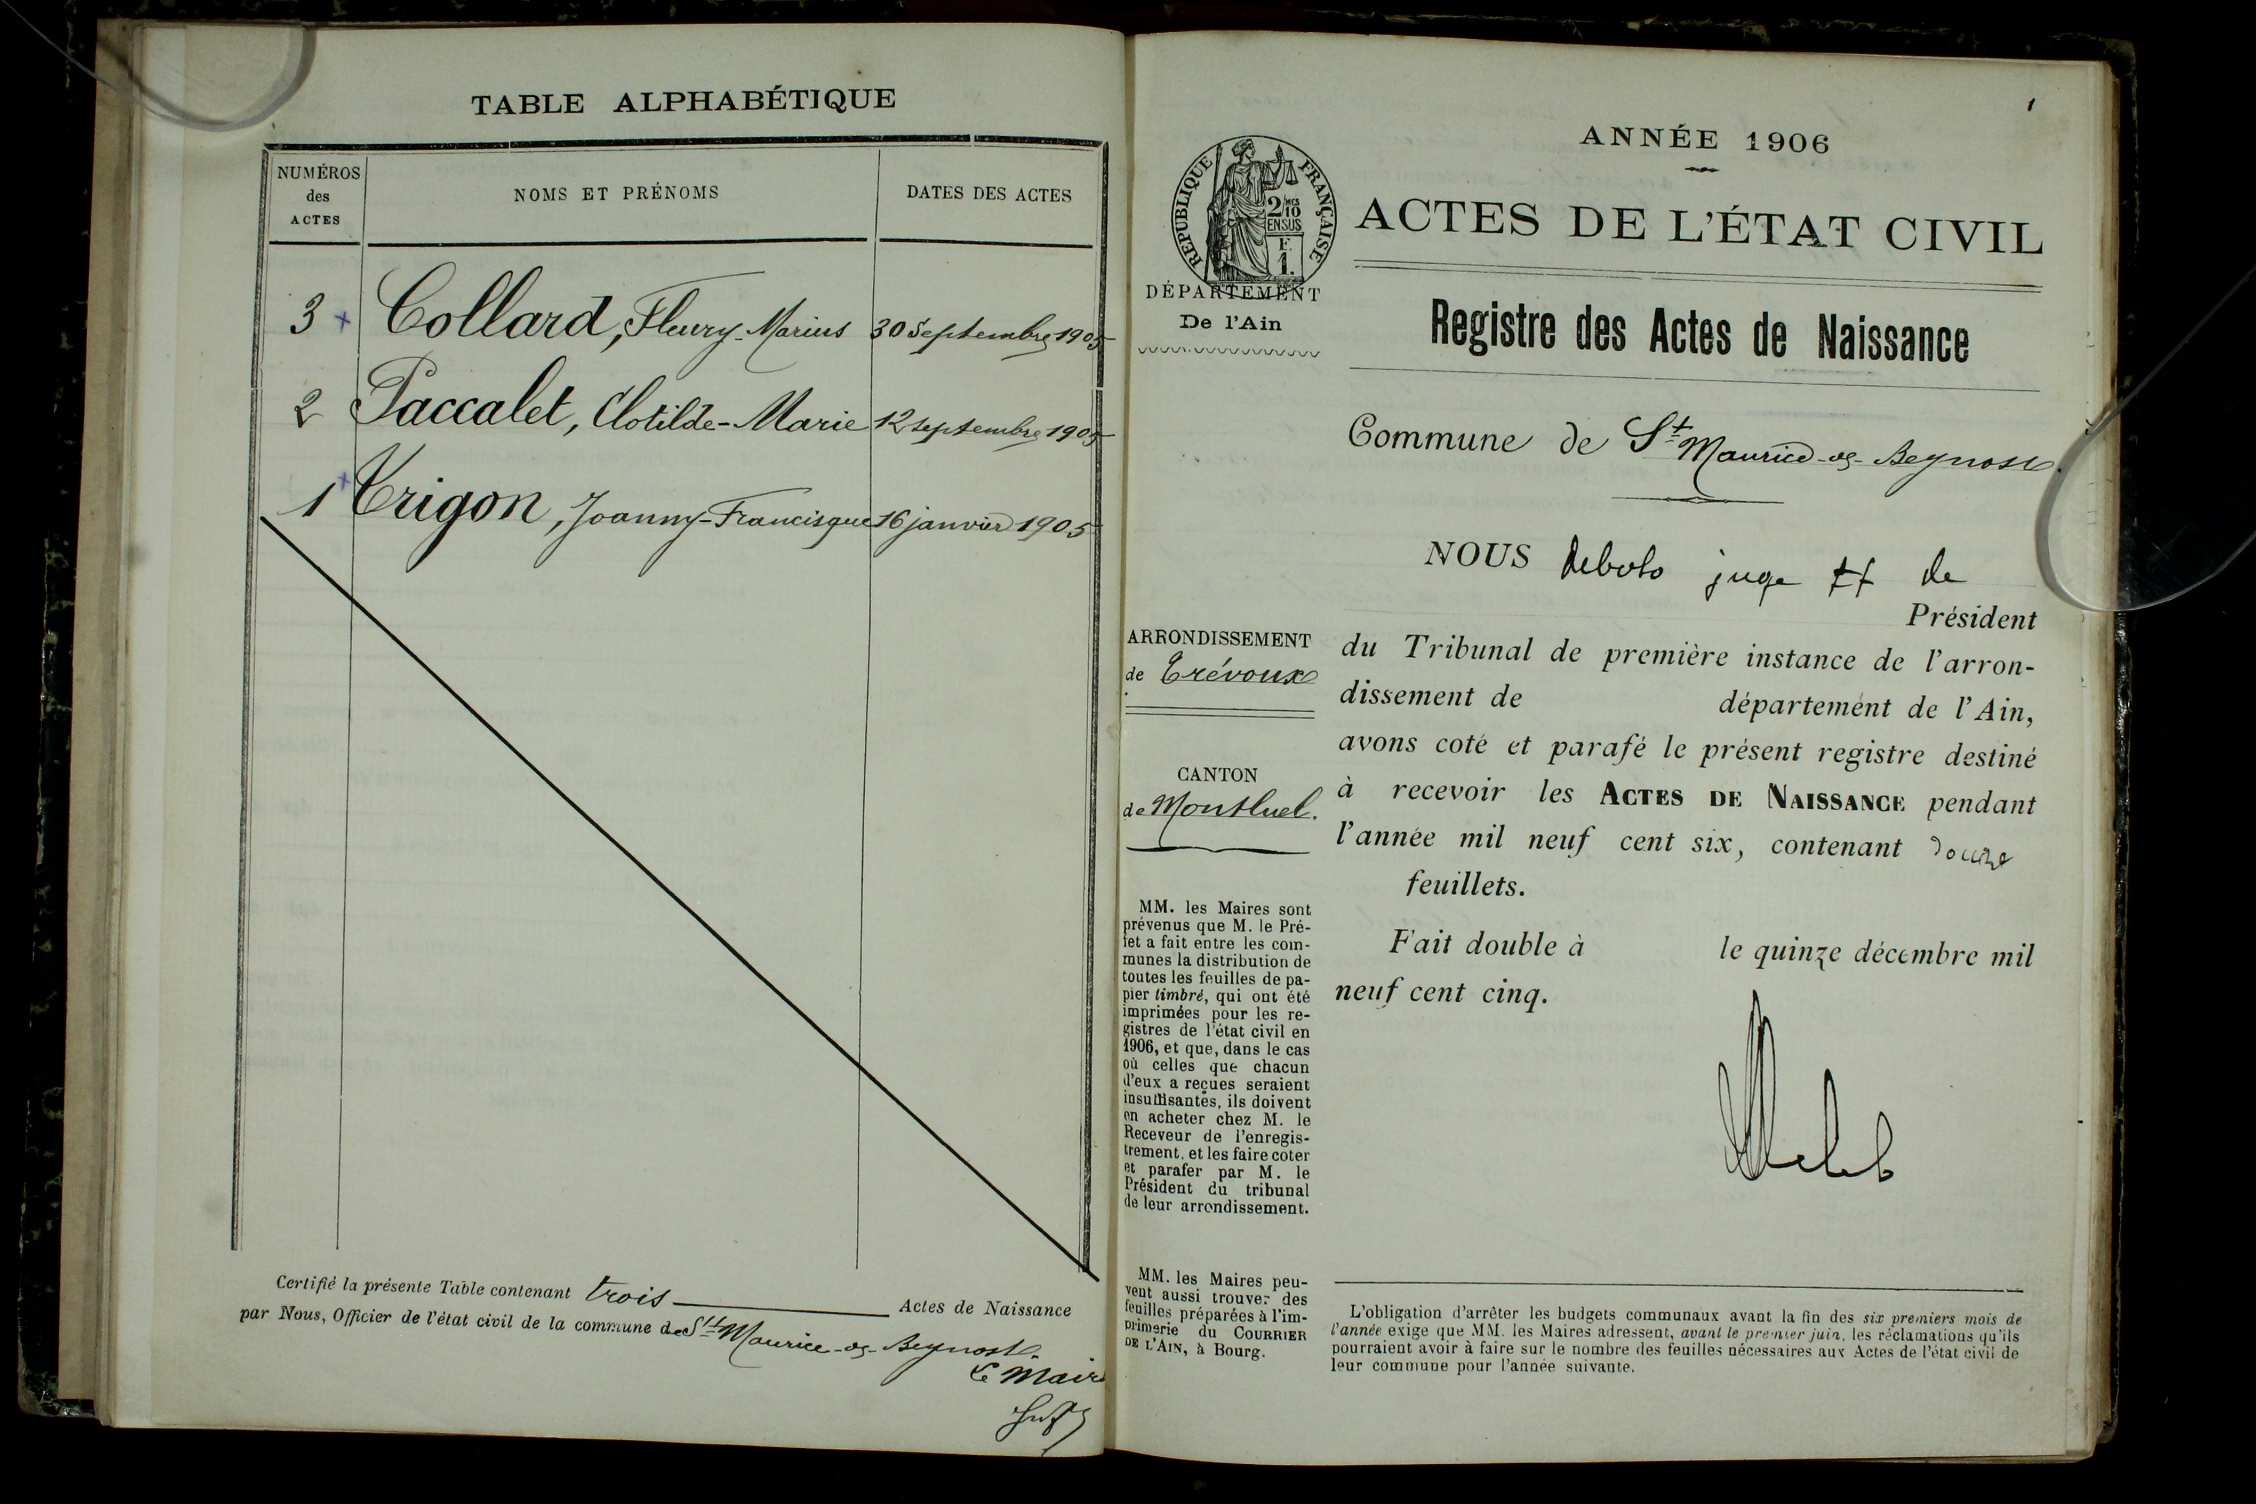 TABLE ALPHABÉTIQUE
NUMÉROS
des
ACTES
NOMS ET PRÉNOMS
DATES DES ACTES
3 Collard, Fleury-Marius 30 Septembre 1905
2 Paccalet, Clotilde-Marie 12 septembre 1905
1 Trigon, Joanny-Francisque 16 janvier 1905
Certifié la présente Table contenant trois Actes de Naissance
par Nous, Officier de l'état civil de la commune de St Maurice-de-Beynost.
Le Maire
1
RÉPUBLIQUE FRANÇAISE
2/10
EN SUS
F.
1.
DÉPARTEMENT
De l'Ain
ARRONDISSEMENT
de Trévoux
CANTON
de Montluel.
MM. les Maires sont
prévenus que M. le Pré-
fet a fait entre les com-
munes la distribution de
toutes les feuilles de pa-
pier timbré, qui ont été
imprimées pour les re-
gistres de l'état civil en
1906, et que, dans le cas
où celles que chacun
d'eux a reçues seraient
insuffisantes, ils doivent
en acheter chez M. le
Receveur de l'enregis-
trement, et les faire coter
et parafer par M. le
Président du tribunal
de leur arrondissement.
MM. les Maires peu-
vent aussi trouver des
feuilles préparées à l'im-
primerie du COURRIER
DE L'AIN, à Bourg.
ANNÉE 1906
ACTES DE L'ÉTAT CIVIL
Registre des Actes de Naissance
Commune de St Maurice-de-Beynost.
NOUS juge de
Président
du Tribunal de première instance de l'arron-
dissement de département de l'Ain,
avons coté et parafé le présent registre destiné
à recevoir les ACTES DE NAISSANCE pendant
l'année mil neuf cent six, contenant douze
feuillets.
Fait double à le quinze décembre mil
neuf cent cinq.
L'obligation d'arrêter les budgets communaux avant la fin des six premiers mois de
l'année exige que MM. les Maires adressent, avant le premier juin, les réclamations qu'ils
pourraient avoir à faire sur le nombre des feuilles nécessaires aux Actes de l'état civil de
leur commune pour l'année suivante.